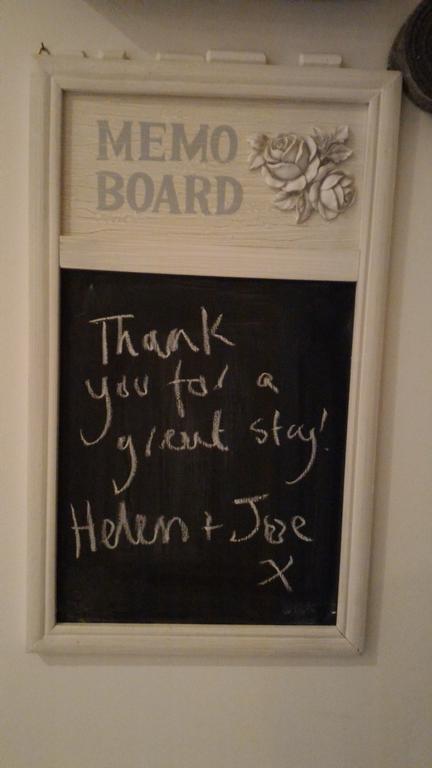 MEMO
BOARD
Thank
you for a
great stay!
Helen + Joe
X